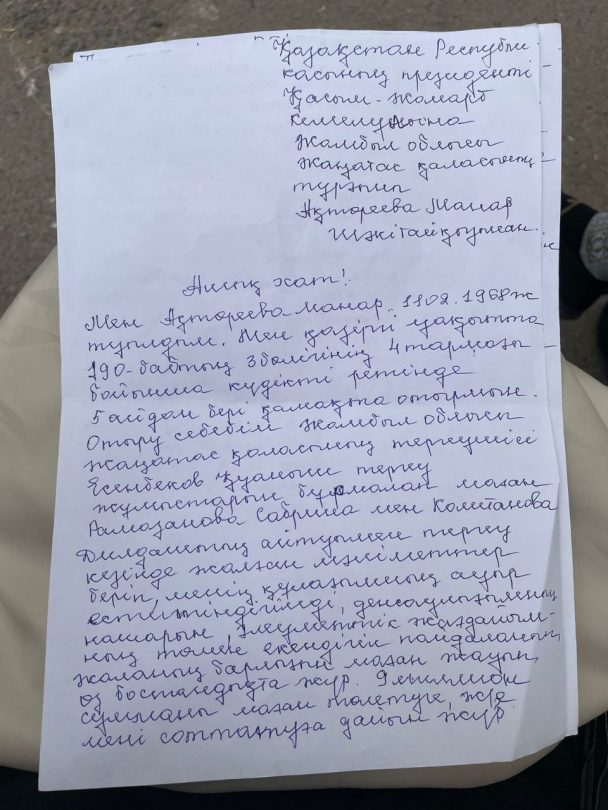 Қазақстан Республи
касының президенті
Қасым-Жомарт
Кемелұлына
Жамбыл облысы
Жаңатас қаласының
тұрғыны
Ақтореева Манар
Ашық хат!
Мен Ақтореева Манар. 11.02.1968ж
туылдым. Мен қазіргі уақытта
190-бабтың 3 бөлігінің 4 тармағы
бойынша күдікті ретінде
5 айдан бері қамақта отырмын.
Отыру себебім Жамбыл облысы
Жаңатас қаласының тергеушісі
Есенбеков Қуаныш тергеу
жұмыстарын бұрмалап маған
Рамазанова Сабрина мен
Дилдаштың айтуымен тергеу
кезінде жалған мәліметтер
беріп, менің құлағымның ауыр
еститіндігімді, денсаулығымның
нашарын, әлеуметтік жағдайым-
ның төмен екендігін пайдаланып,
жаланың барлығын маған жауып,
өз бостандықта жүр. 9 миллион
сумманы маған төлетуге, және
мені соттатуға дайын жүр.